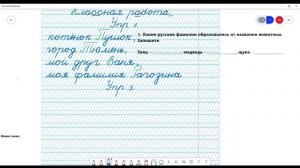 Классная работа.
Упр. 1.
котёнок Пушок
город Тюмень,
мой друг Ваня,
моя фамилия Рагозина
Упр. 3.
1. Какие русские фамилии образовались от названия животных.
Запишите.
Заяц медведь щука